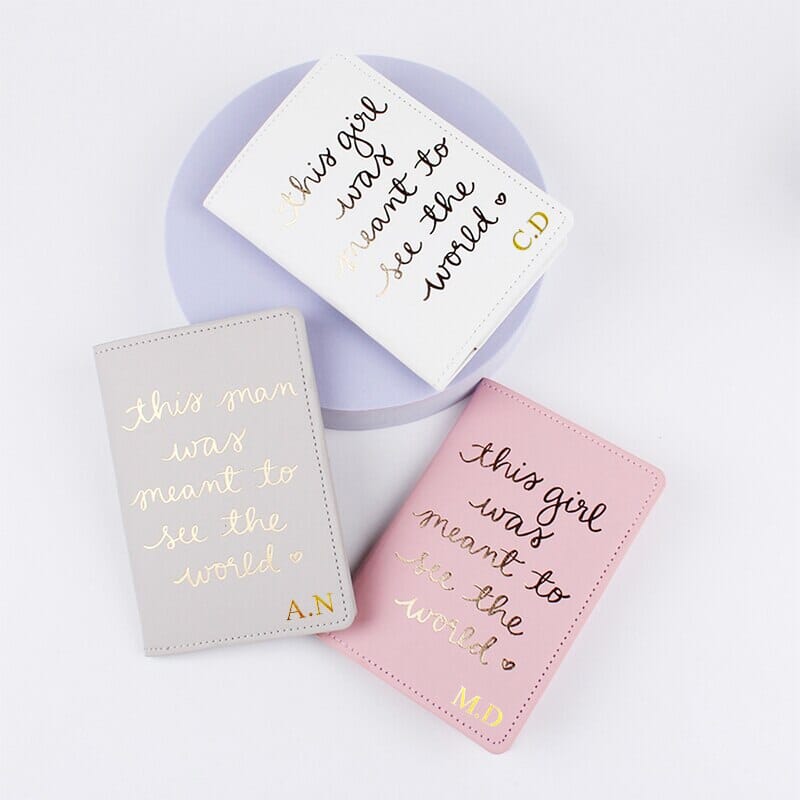 this girl
was
meant to
see the
world ♡
C.D
this man
was
meant to
see the
world ♡
A.N
this girl
was
meant to
see the
world ♡
M.D